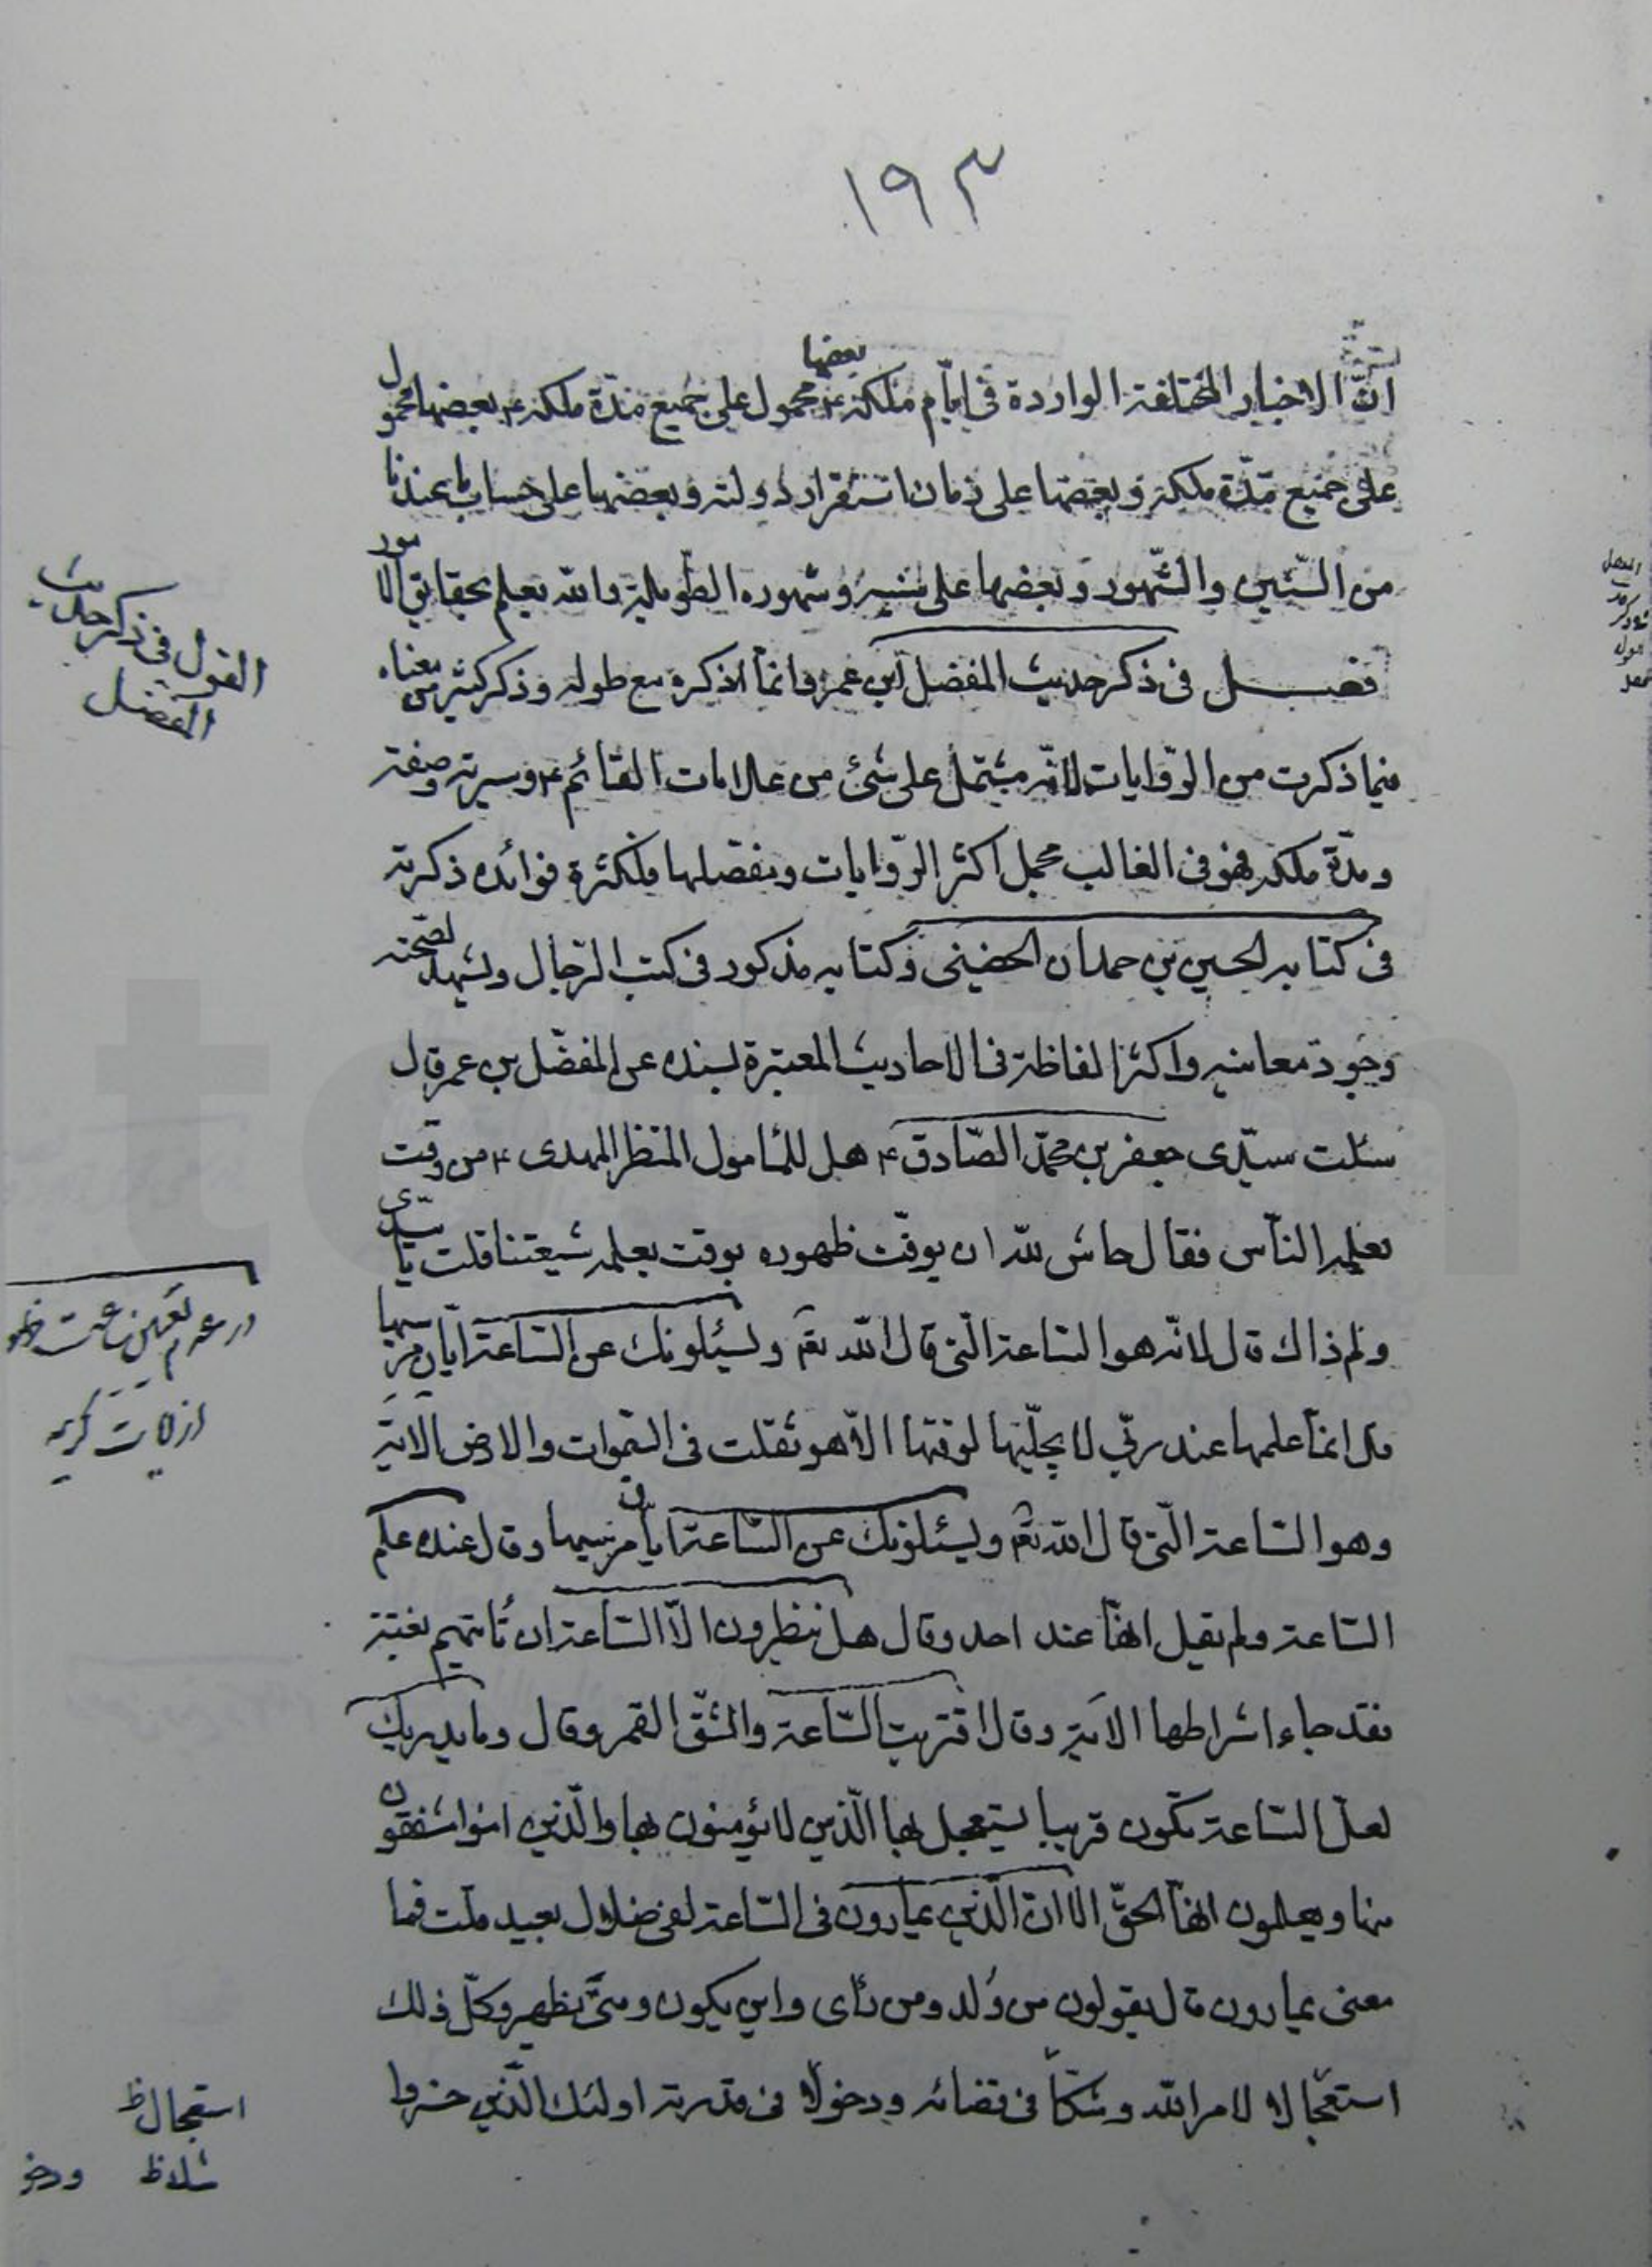 ١٩٣
انّ الاخبار المختلفة الواردة فى ايّام ملكه ع بعضها محمول على جميع مدّة ملكه ع بعضها محمول
على جميع مدّة ملكه و بعضها على زمان استقرار دولته و بعضها على حساب ما عندنا
من السّنين والشّهور و بعضها على سنيه و شهوره الطّويلة والله يعلم بحقايق الامور
فصل فى ذكر حديث المفضل ابن عمر وانّما اذكره مع طوله و ذكر كثير من معناه
فيما ذكرت من الرّوايات لانّه مشتمل على شئ من علامات القائم ع و سيرته و صفته
و مدّة ملكه فهو فى الغالب مجمل اكثر الرّوايات و مفصلها فلكثرة فوائده ذكرته
فى كتابه الحسين بن حمدان الحضينى و كتابه مذكور فى كتب الرّجال و يشهد لصحّته
وجود معانيه واكثر الفاظه فى الاحاديث المعتبرة بسنده عن المفضّل بن عمر قال
سئلت سيّدى جعفر بن محمّد الصّادق ع هل للمأمول المنتظر المهدى ع من وقت
يعلمه النّاس فقال حاش لله ان يوقّت ظهوره بوقت يعلمه شيعتنا قلت يا سيّدى
ولم ذاك قال لانّه هو السّاعة الّتى قال الله تع ويسئلونك عن السّاعة ايّان مرسيها
قل انمّا علمها عند ربّى لا يجلّيها لوقتها الّا هو ثقلت فى السّموات والارض الاية
وهو السّاعة الّتى قال الله تع ويسئلونك عن السّاعة ايان مرسيها وقال عنده علم
السّاعة ولم يقل انهّا عند احد وقال هل ينظرون الّا السّاعة ان تأتيهم بغتة
فقد جاء اشراطها الاية وقال اقتربت السّاعة وانشقّ القمر وقال وما يدريك
لعلّ السّاعة تكون قريبا يستعجل بها الّذين لا يؤمنون بها والّذين امنوا مشفقون
منها ويعلمون انهّا الحقّ الا ان الّذين يمارون فى السّاعة لفى ضلال بعيد قلت فما
معنى يمارون قال يقولون من وُلد ومن رأى واين يكون ومتى يظهر وكلّ ذلك
استعجالا لامر الله وشكّا فى قضائه ودخولا فى قدرته اولئك الّذين خسروا
القول فى ذكر حديث
المفضل
در عدم تعيين
از ايات كريمه
استعجال ظ